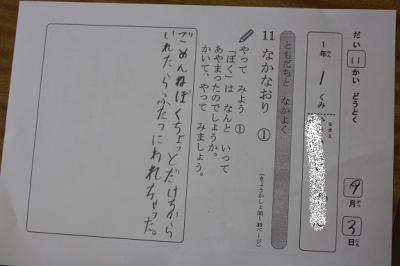 だい11かい どうとく
9月3日
1年 1くみ
なまえ
ともだちと なかよく
11 なかなおり ①
(きょうかしょ36〜39ページ)
やって みよう ①
「ぼく」は なんと いって
あやまったのでしょうか。
かいて、やって みましょう。
ごめんねぼくちょっとだけちから
いれたらふたつにわれちゃった。